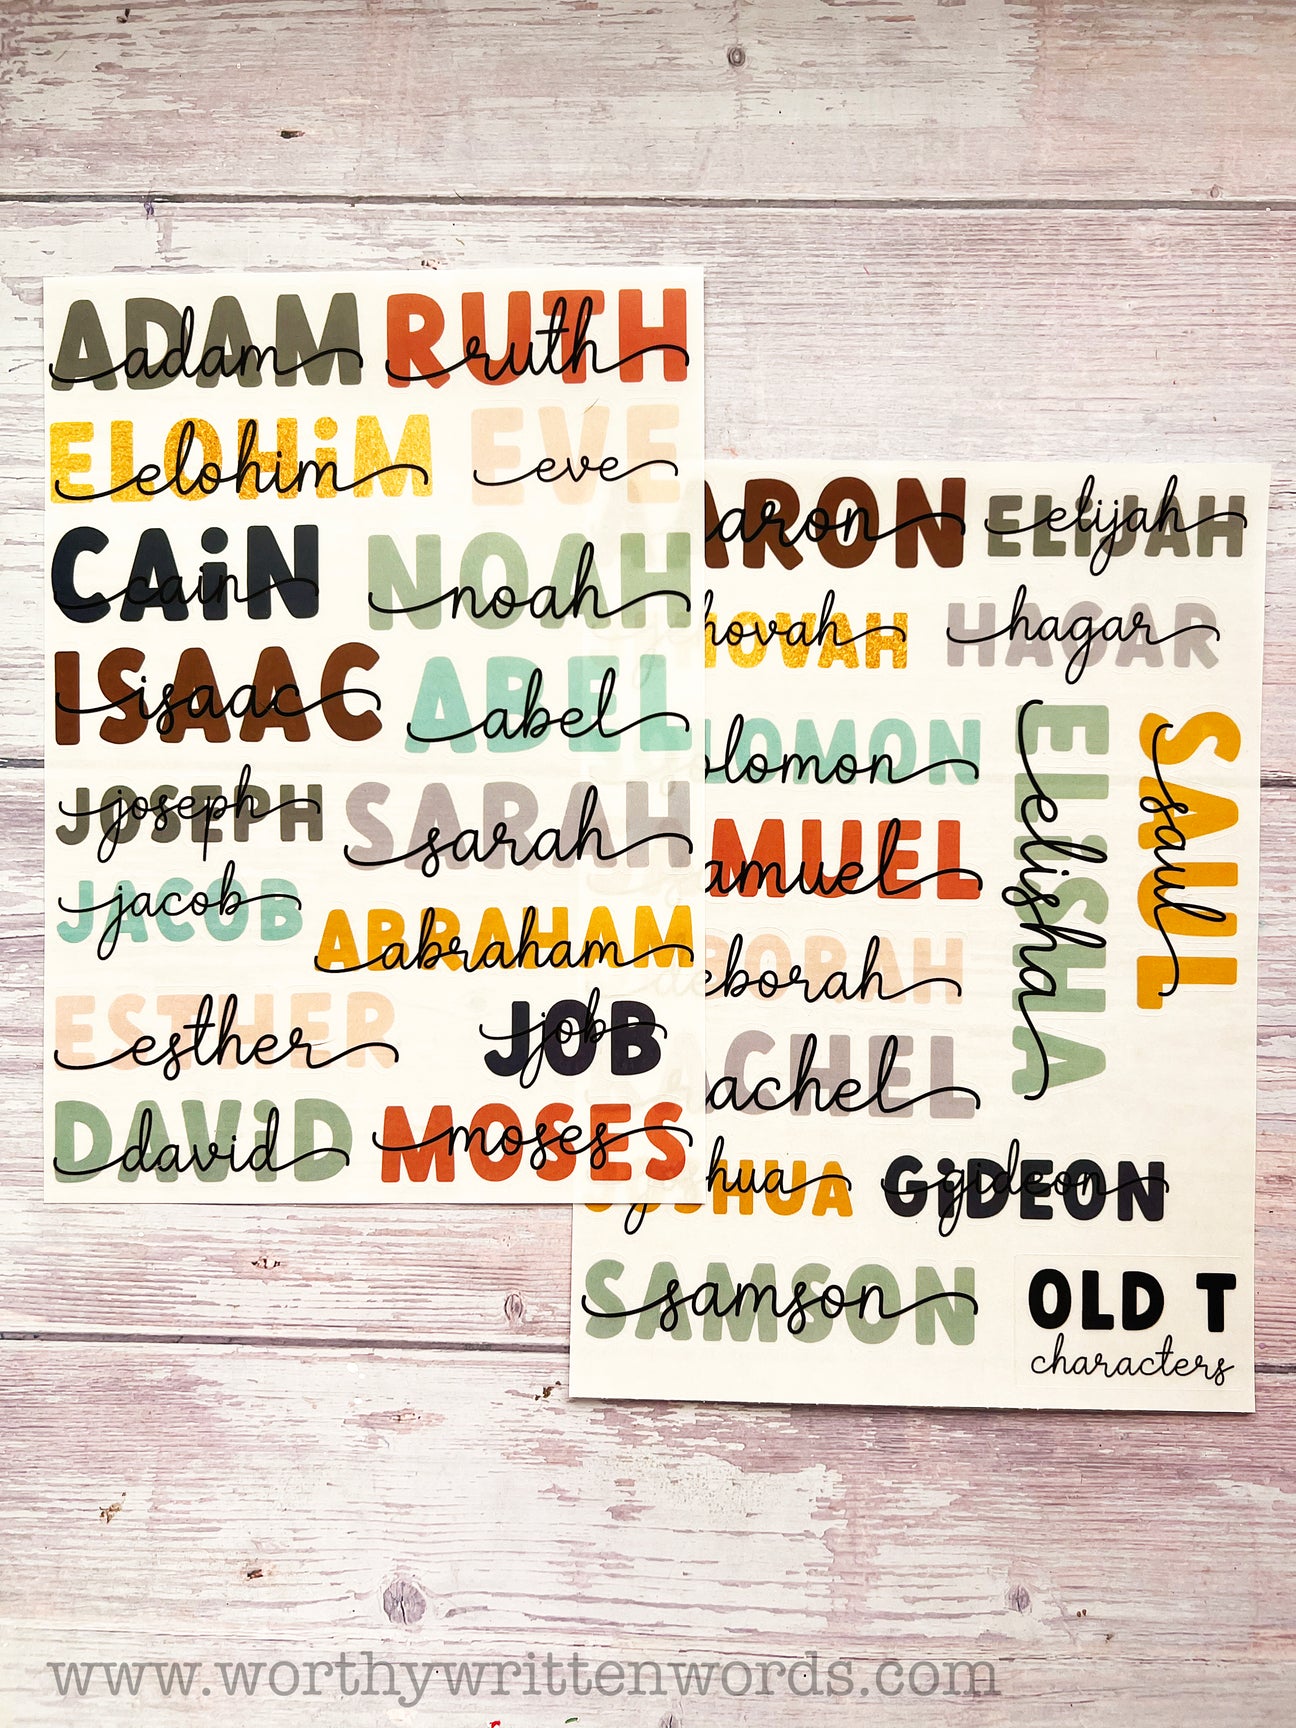 ADAM adam RUTH ruth
ELOHiM elohim EVE eve
CAiN cain NOAH noah
ISAAC isaac ABEL abel
JOSEPH joseph SARAH sarah
JACOB jacob ABRAHAM abraham
ESTHER esther JOB job
DAViD david MOSES moses
ARON aron ELIJAH elijah
HOVAH hovah HAGAR hagar
LOMON olomon ELiSHA elisha SAUL saul
AMUEL amuel
BORAH eborah
ACHEL achel
SHUA hua GiDEON gideon
SAMSON samson
OLD T
characters
www.worthywrittenwords.com